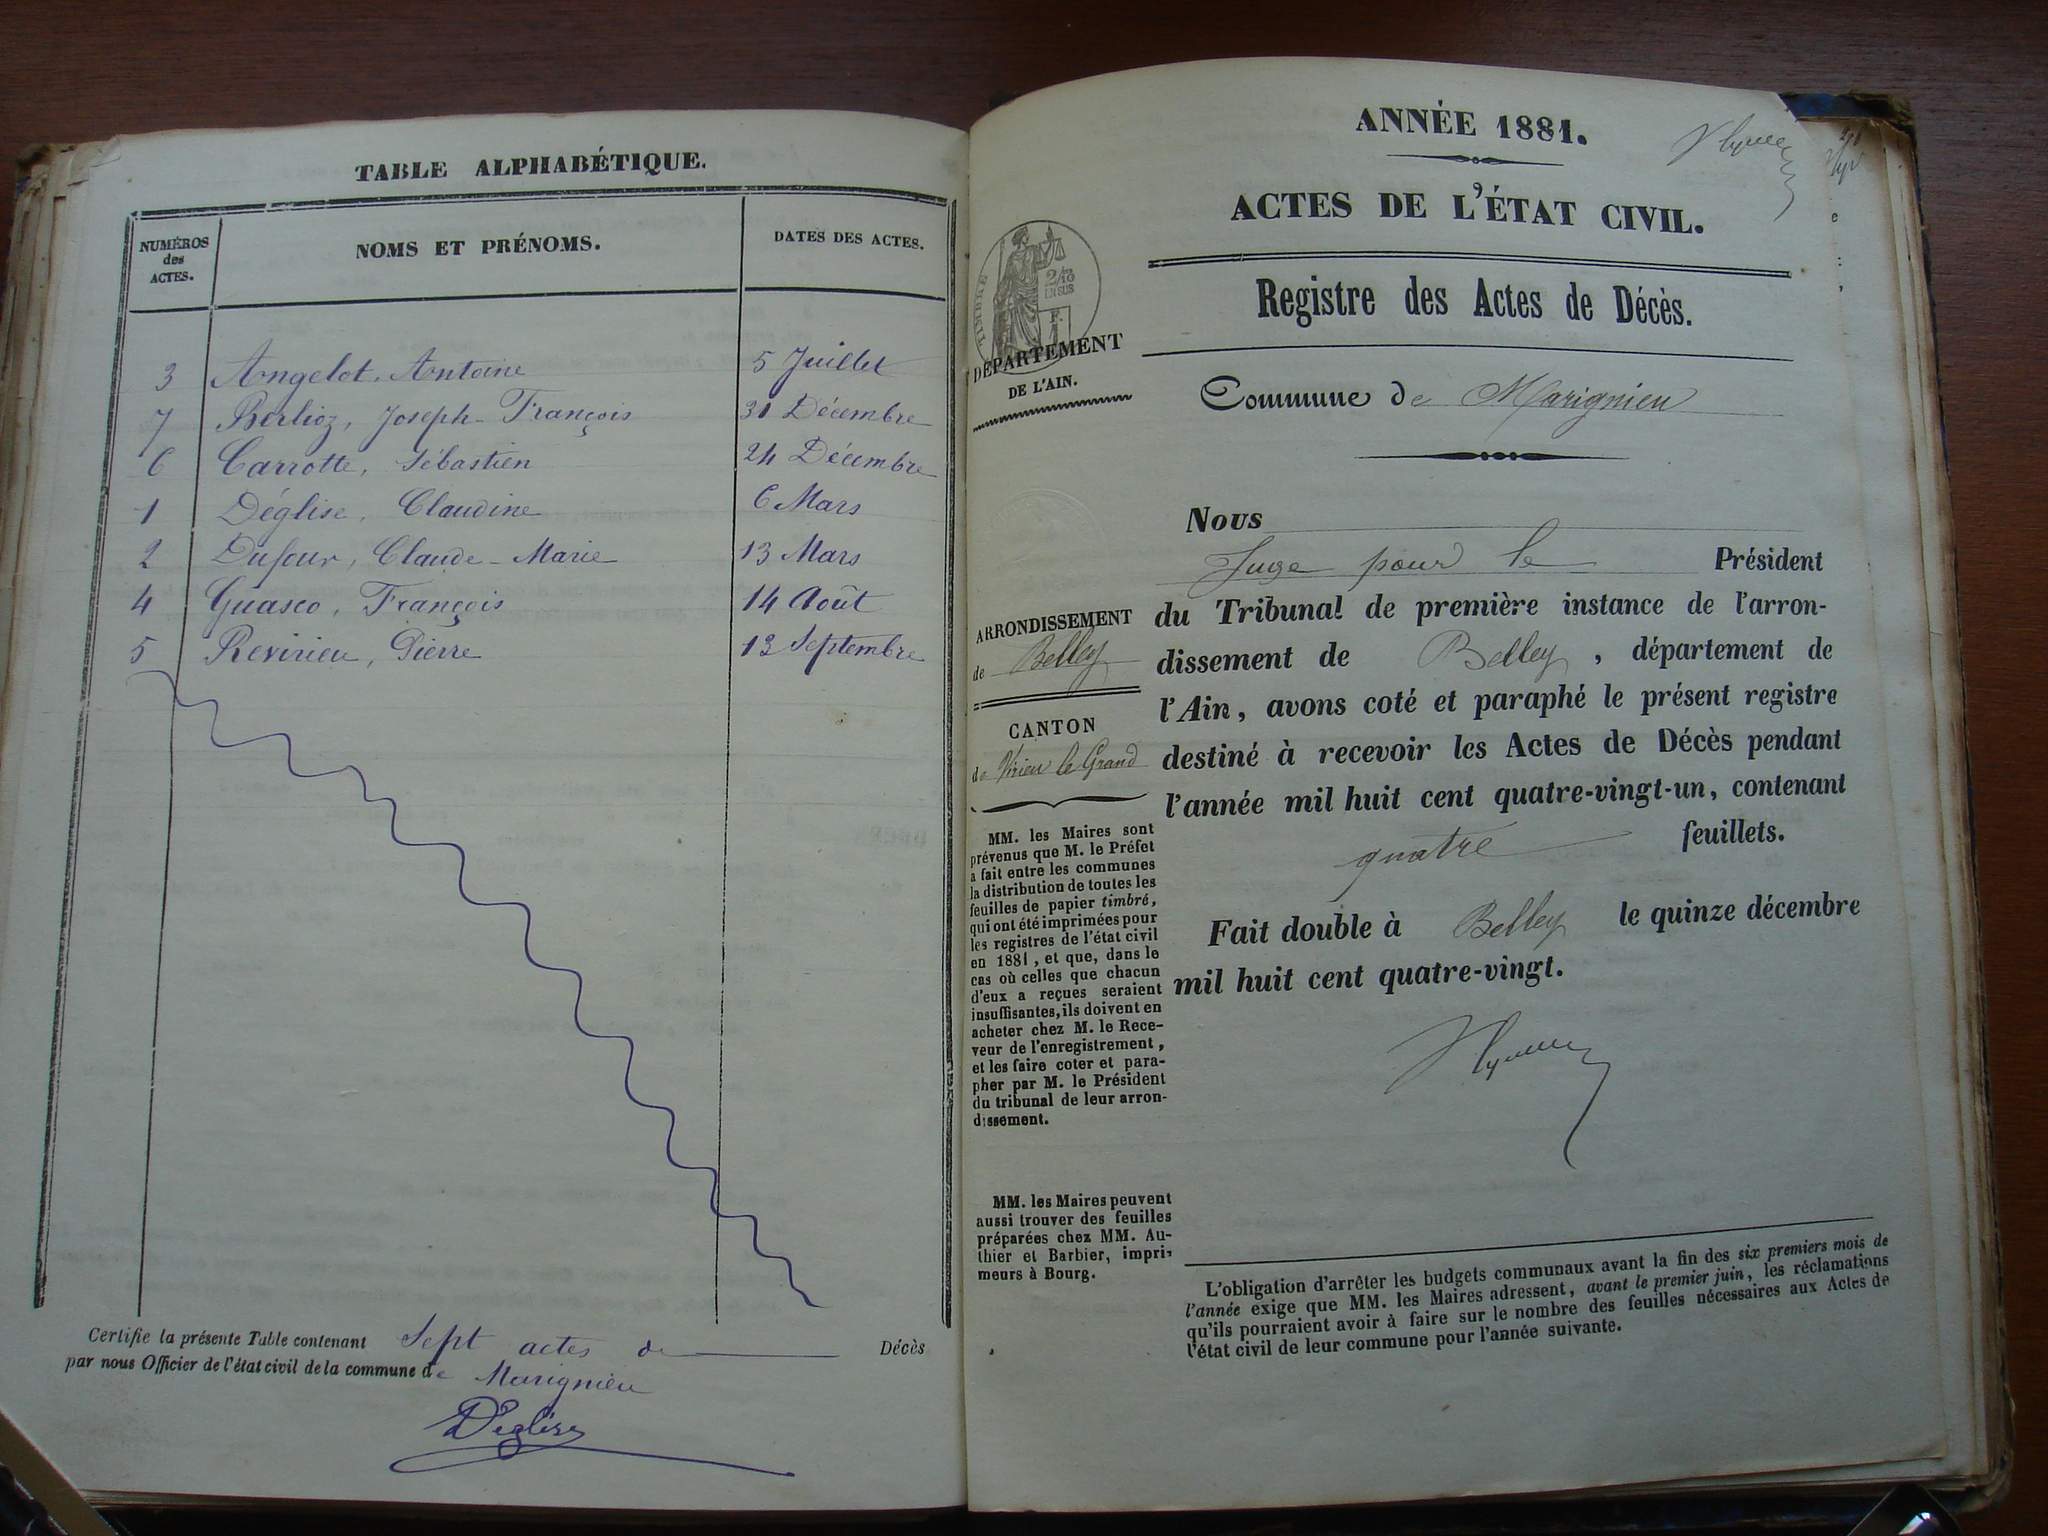 TABLE ALPHABÉTIQUE.
NUMÉROS des ACTES. NOMS ET PRÉNOMS. DATES DES ACTES.
3 Angelot, Antoine 5 Juillet
7 Berlioz, Joseph-François 31 Décembre
6 Carrotte, Sébastien 24 Décembre
1 Déglise, Claudine 6 Mars
2 Dufour, Claude-Marie 13 Mars
4 Guasco, François 14 Août
5 Revirieu, Pierre 13 Septembre
Certifie la présente Table contenant Sept actes de Décès
par nous Officier de l'état civil de la commune de Marignieu
Déglise
ANNÉE 1881.
ACTES DE L'ÉTAT CIVIL.
Registre des Actes de Décès.
TIMBRE
2/10
EN SUS
DÉPARTEMENT
DE L'AIN.
Commune de Marignieu
ARRONDISSEMENT
de Belley
CANTON
de Virieu le Grand
MM. les Maires sont
prévenus que M. le Préfet
a fait entre les communes
la distribution de toutes les
feuilles de papier timbré,
qui ont été imprimées pour
les registres de l'état civil
en 1881, et que, dans le
cas où celles que chacun
d'eux a reçues seraient
insuffisantes, ils doivent en
acheter chez M. le Rece-
veur de l'enregistrement,
et les faire coter et para-
pher par M. le Président
du tribunal de leur arron-
dissement.
MM. les Maires peuvent
aussi trouver des feuilles
préparées chez MM. Au-
thier et Barbier, impri-
meurs à Bourg.
Nous
Juge pour le Président
du Tribunal de première instance de l'arron-
dissement de Belley, département de
l'Ain, avons coté et paraphé le présent registre
destiné à recevoir les Actes de Décès pendant
l'année mil huit cent quatre-vingt-un, contenant
quatre feuillets.
Fait double à Belley le quinze décembre
mil huit cent quatre-vingt.
L'obligation d'arrêter les budgets communaux avant la fin des six premiers mois de
l'année exige que MM. les Maires adressent, avant le premier juin, les réclamations
qu'ils pourraient avoir à faire sur le nombre des feuilles nécessaires aux Actes de
l'état civil de leur commune pour l'année suivante.